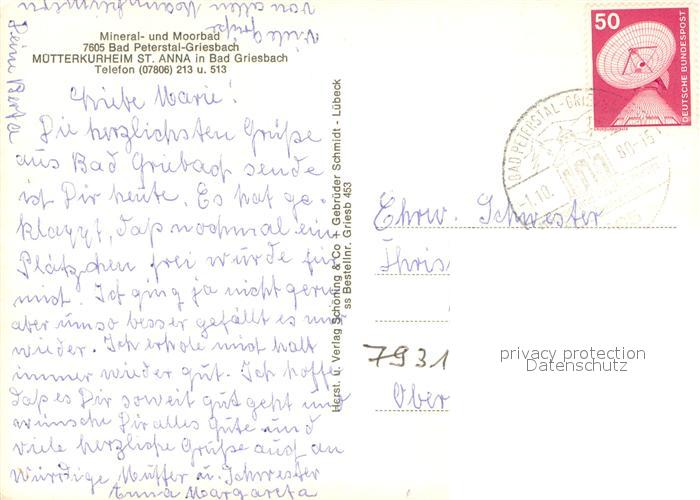 Mineral- und Moorbad
7605 Bad Peterstal-Griesbach
MÜTTERKURHEIM ST. ANNA in Bad Griesbach
Telefon (07806) 213 u. 513
Liebe Marie!
Die herzlichsten Grüße
aus Bad Griesbach sende
ich Dir heute. Es hat ge-
klappt, daß nochmal ein
Plätzchen frei wurde für
mich. Ich ging ja nicht gern
aber umso besser gefällt es mir
wieder. Ich erhole mich halt
immer wieder gut. Ich hoffe
daß es Dir soweit gut geht und
wünsche Dir alles Gute und
viele herzliche Grüße auch an
Würdige Mutter u. Schwester
Anna Margareta
viele Grüße
von allen
Deine Berta
Herst. u. Verlag Schöning & Co + Gebrüder Schmidt - Lübeck
ss Bestellnr. Griesb 453
50
DEUTSCHE BUNDESPOST
BAD PETERSTAL-GRIES
-1.10. 80-15
Ehrw. Schwester
Chris
7931
Ober
privacy protection
Datenschutz